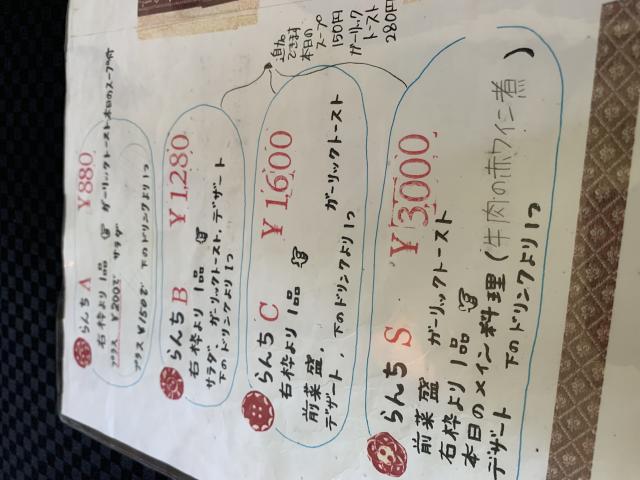 追加
できます
本日の
スープ
150円
ガーリック
トースト
280円
らんち A ¥880
右枠より 1品 ガーリックトースト 本日のスープ付
プラス ¥200で サラダ
プラス ¥150で 下のドリンクより1つ
らんち B ¥1,280
右枠より 1品
サラダ ガーリックトースト,デザート
下のドリンクより1つ
らんち C ¥1600
右枠より 1品
前菜盛, ガーリックトースト
デザート, 下のドリンクより1つ
らんち S ¥3,000
前菜盛 ガーリックトースト
右枠より 1品
本日のメイン料理(牛肉の赤ワイン煮)
デザート 下のドリンクより1つ